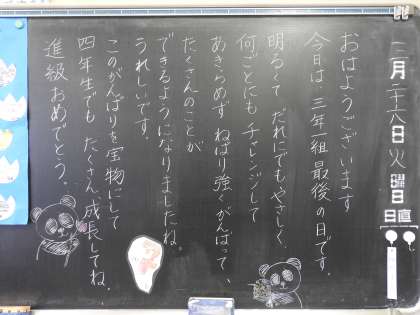 三月二十六日火曜日
日直
おはようございます
今日は、三年一組最後の日です。
明るくて だれにでもやさしく、
何ごとにも チャレンジして
あきらめず ねばり強くがんばって、
たくさんのことが
できるようになりましたね。
うれしいです。
このがんばりを宝物にして
四年生でも たくさん成長してね。
進級おめでとう。